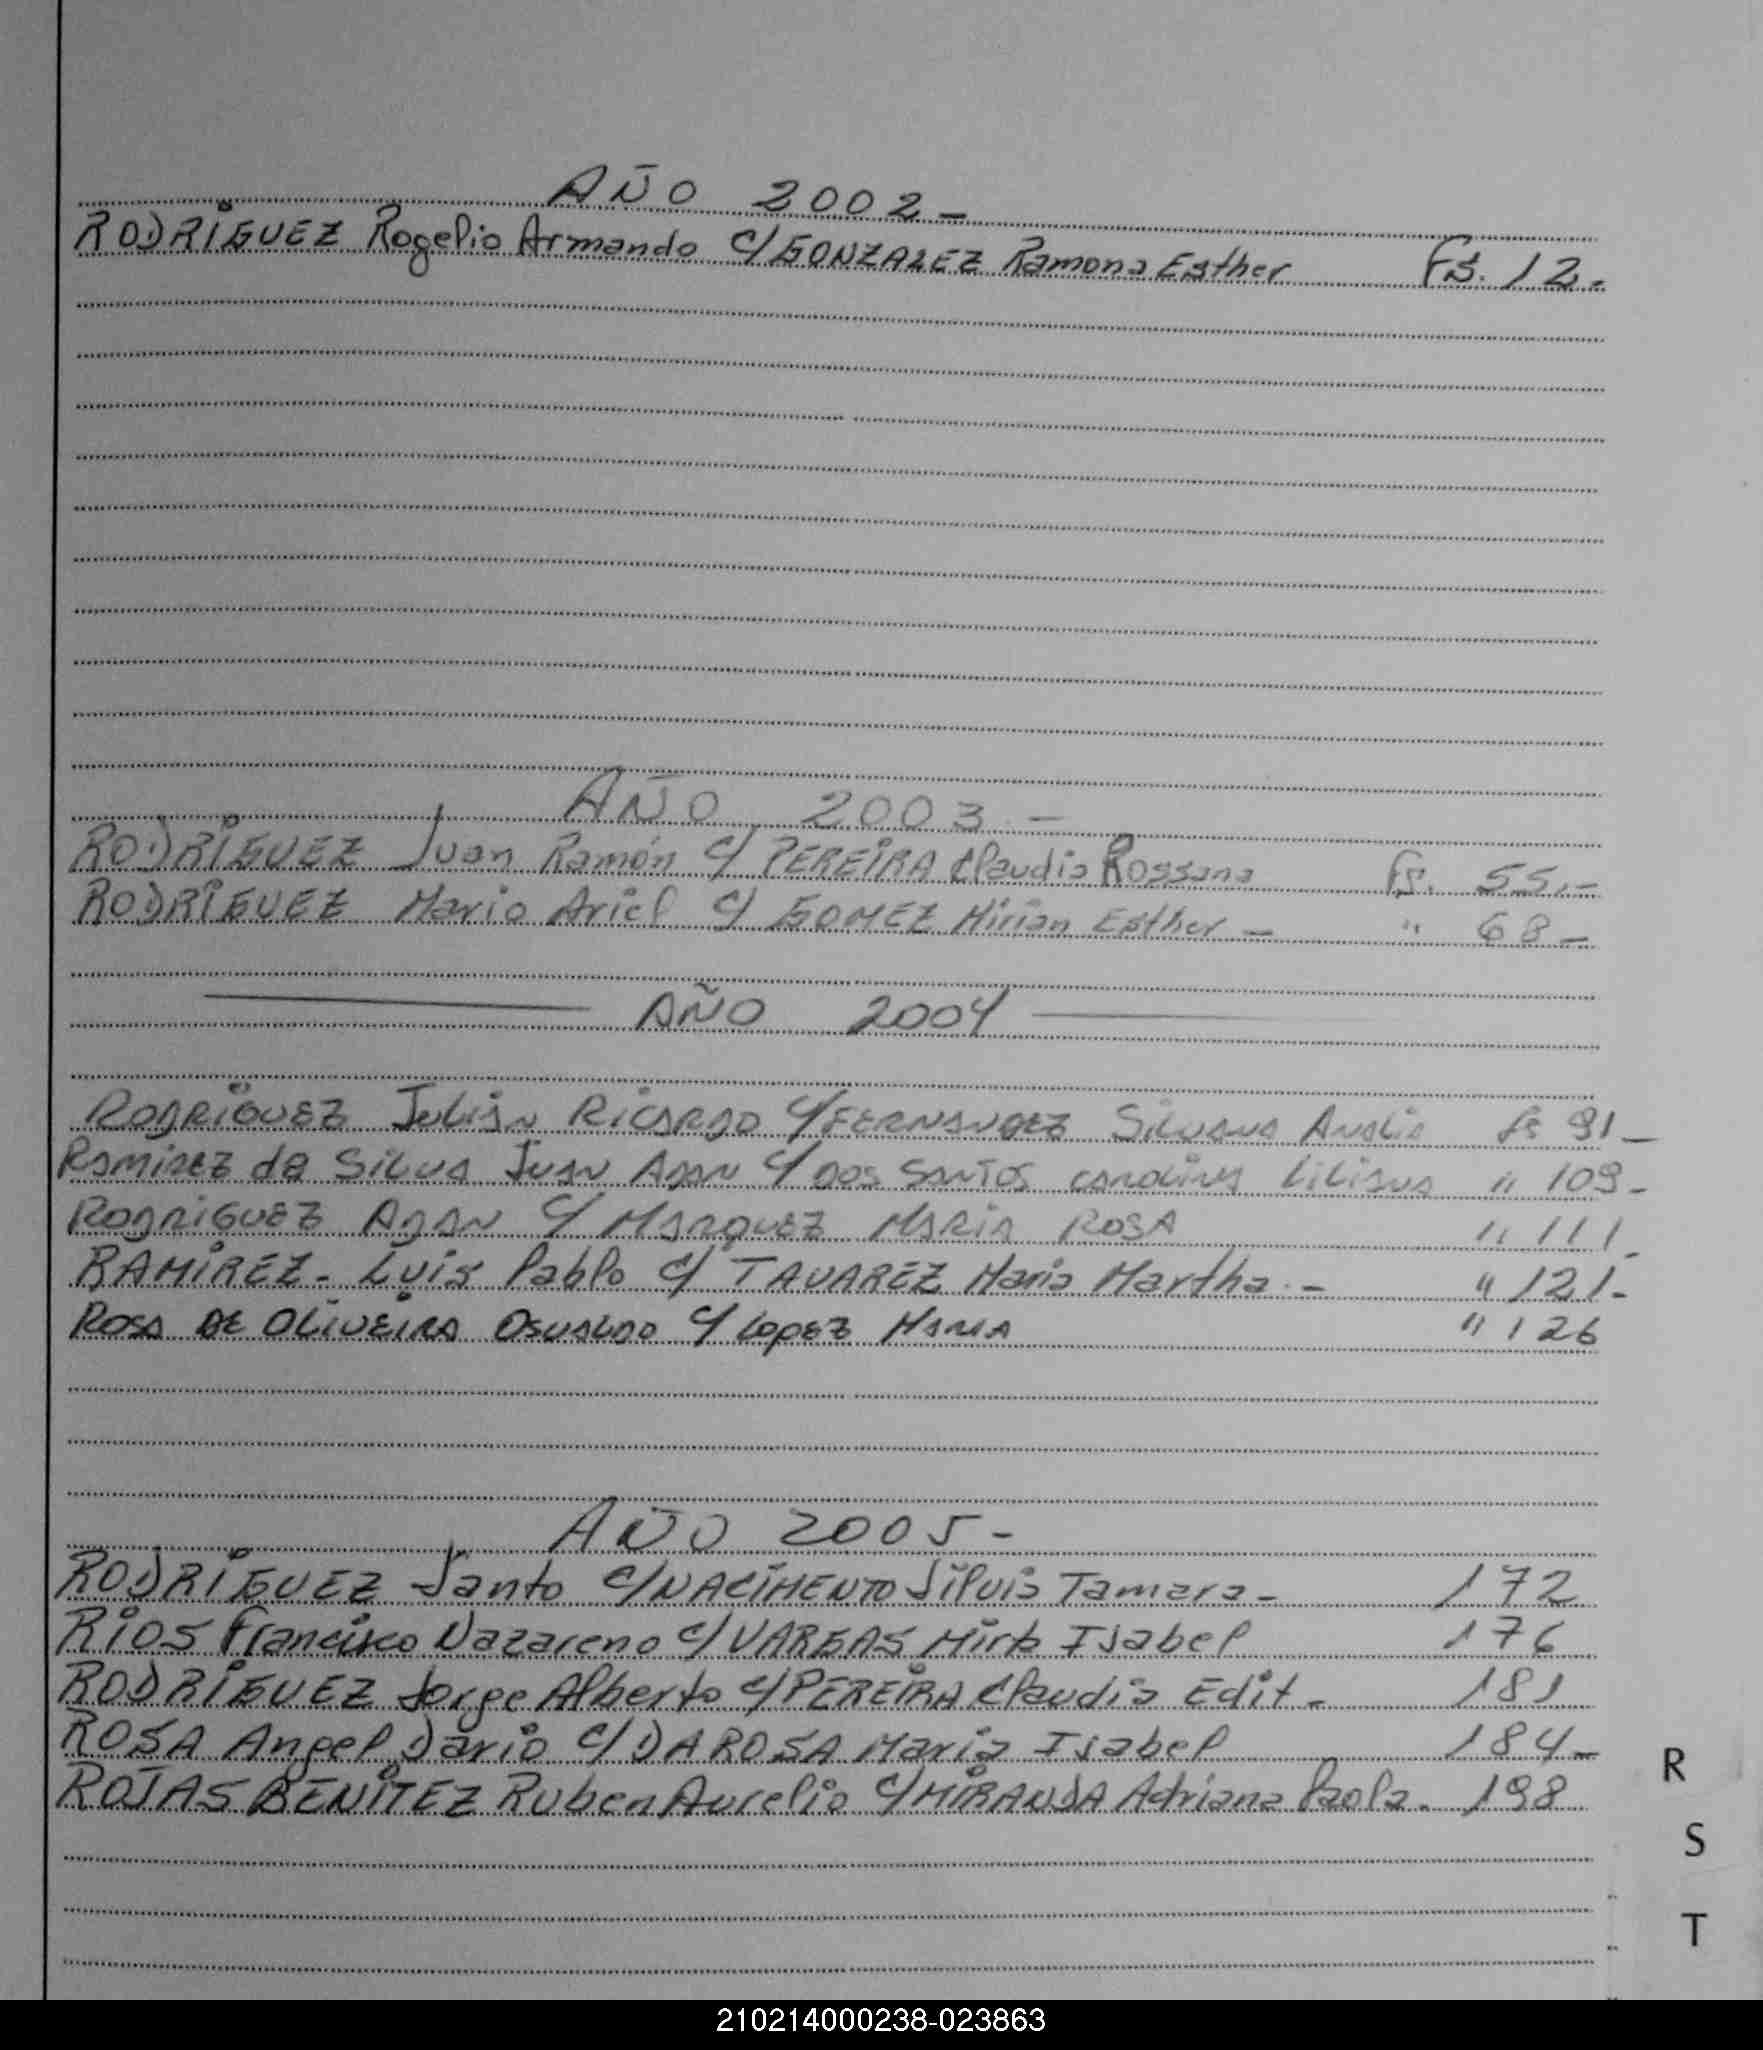 AÑO 2002-
RODRIGUEZ Rogelio Armando c/ GONZALEZ Ramona Esther Fs. 12.-
AÑO 2003-
RODRIGUEZ Juan Ramón c/ PEREIRA Claudia Rossana Fs. 55.-
RODRIGUEZ Mario Ariel c/ GOMEZ Mirian Esther - " 68-
AÑO 2004
RODRIGUEZ Julian RICARDO c/ FERNANDEZ Silvana Analia fs 91-
Ramirez da Silva Juan Adan c/ dos Santos carolina Liliana " 109-
RODRIGUEZ ADAN c/ MARQUEZ MARIA ROSA " 111-
RAMIREZ- Luis Pablo c/ TAVAREZ Maria Martha.- " 121-
ROSA DE OLIVEIRA OSVALDO c/ Lopez MARIA " 126
AÑO 2005-
RODRIGUEZ Santo c/ NACIMENTO Silvia Tamara- 172
RIOS Francisco Nazareno c/ VARGAS Mirta Isabel 176
RODRIGUEZ Jorge Alberto c/ PEREIRA Claudia Edit- 181
ROSA Angel Dario c/ DA ROSA Maria Isabel 184-
ROJAS BENITEZ Ruben Aurelio c/ MIRANDA Adriana Paola. 198
R
S
T
210214000238-023863